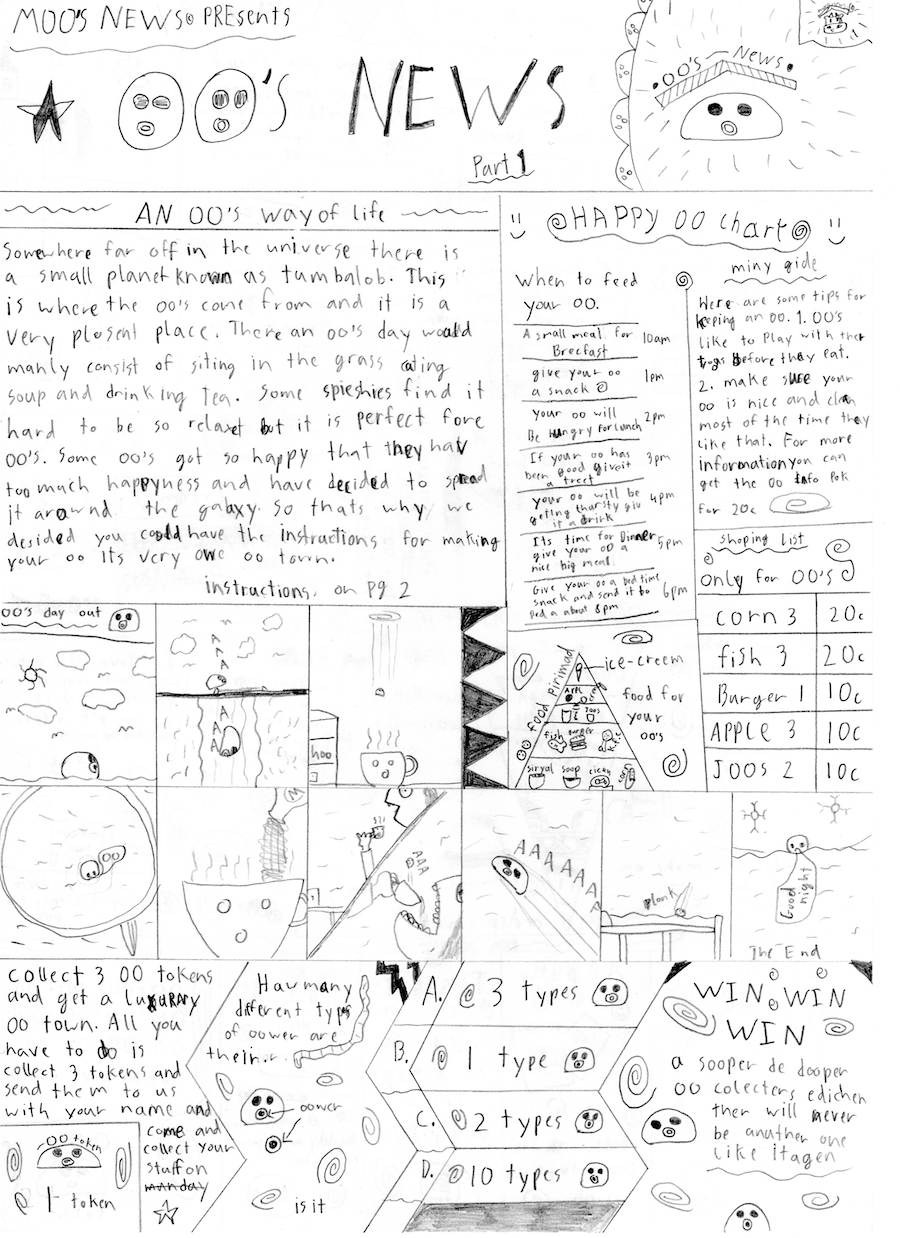 MOO'S NEWS PRESENTS
OO'S NEWS
Part 1
OO'S NEWS
AN OO'S way of life
Somewhere far off in the universe there is
a small planet known as tumbalob. This
is where the oo's come from and it is a
very plosent place. There an oo's day would
manly consist of siting in the grass eating
soup and drinking Tea. Some spieshies find it
hard to be so relaxet but it is perfect fore
OO'S. Some OO's got so happy that they hav
too much happyness and have decided to spread
it around the galaxy. So thats why we
desided you could have the instructions for making
your oo its very owe oo town.
instructions, on pg 2
HAPPY OO chart
When to feed
your OO.
A small meal for
Brecfast
10am
give your oo
a snack
1pm
Your oo will
Be Hungry for lunch
2pm
If your oo has
been good givoit
a treet
3pm
your oo will be
geting thursty giv
it a drink
4pm
Its time for Dinner
give your OO a
nice big meal.
5pm
Give your oo a bed time
snack and send it to
Bed a about 8pm
6pm
miny gide
Here are some tips for
keping an oo. 1. OO's
like to Play with ther
toys before they eat.
2. make sure your
oo is nice and clen
most of the time they
like that. For more
information you can
get the OO Info Pak
for 20c
shoping list
only for OO's
corn 3 20c
fish 3 20c
Burger 1 10c
APPLE 3 10c
JOOS 2 10c
food Pirimad
ice-creem
food for
your
oo's
APPL
Joos
fish
Burger
siryal
soop
corn
OO's day out
AAAA
AAAA
hoo
AAA
AAAAAAA
plonk
Good
night
The End
collect 3 OO tokens
and get a luxurary
OO town. All you
have to do is
collect 3 tokens and
send them to us
with your name and
come and
collect your
stuff on
munday
OO token
1 token
Haw many
different types
of oower are
their..
oower
is it
A. 3 types
B. 1 type
C. 2 types
D. 10 types
WIN WIN
WIN
a sooper de dooper
OO colecters edichen
ther will never
be anuther one
like itagen